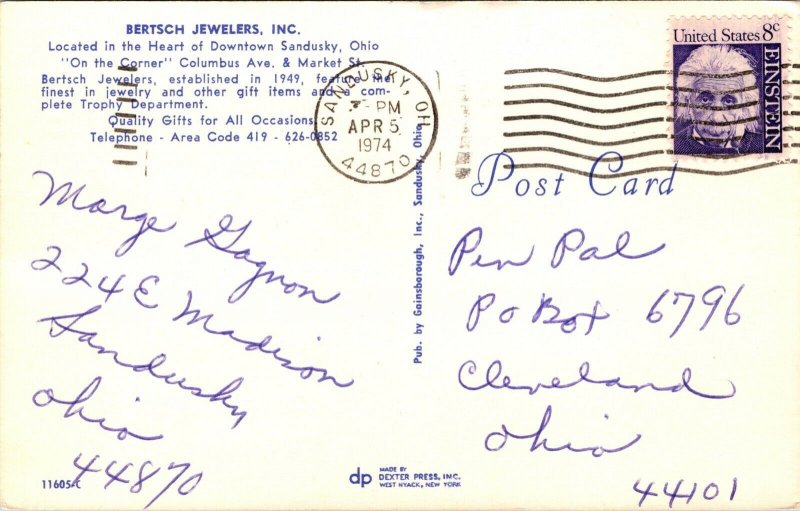 BERTSCH JEWELERS, INC.
Located in the Heart of Downtown Sandusky, Ohio
"On the Corner" Columbus Ave. & Market St.
Bertsch Jewelers, established in 1949, feature the
finest in jewelry and other gift items and a com-
plete Trophy Department.
Quality Gifts for All Occasions
Telephone - Area Code 419 - 626-0852
SANDUSKY, OH
PM
APR 5
1974
44870
United States 8c
EINSTEIN
Post Card
Marge Gagnon
224 E Madison
Sandusky
Ohio
44870
Pub. by Gainsborough, Inc., Sandusky, Ohio
Pen Pal
PO Box 6796
Cleveland
Ohio
44101
11605-C
dp
MADE BY
DEXTER PRESS, INC.
WEST NYACK, NEW YORK